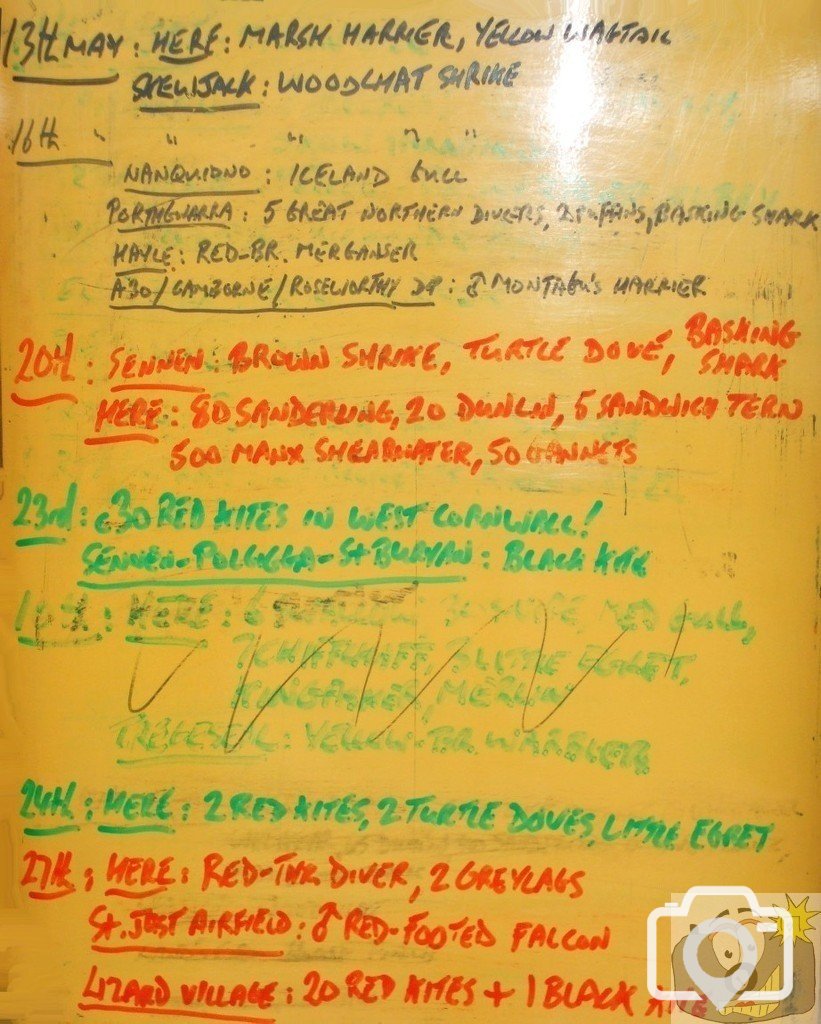 13th MAY : HERE : MARSH HARRIER, YELLOW WAGTAIL
SKEWJACK : WOODCHAT SHRIKE
16th " " " " "
NANQUIDNO : ICELAND GULL
PORTHGWARRA : 5 GREAT NORTHERN DIVERS, 2 PUFFINS, BASKING SHARK
HAYLE : RED-BR. MERGANSER
A30/CAMBORNE/ROSEWORTHY DP : ♂ MONTAGU'S HARRIER
20th : SENNEN : BROWN SHRIKE, TURTLE DOVE, BASKING SHARK
HERE : 80 SANDERLING, 20 DUNLIN, 5 SANDWICH TERN
500 MANX SHEARWATER, 50 GANNETS
23rd : c30 RED KITES IN WEST CORNWALL!
SENNEN-POLGIGGA-St BURYAN : BLACK KITE
HERE : 6 MED GULL,
CHIFFCHAFF, 3 LITTLE EGRET,
KINGFISHER, MERLIN
TREGESEAL : YELLOW-BR. WARBLER
24th : HERE : 2 RED KITES, 2 TURTLE DOVES, LITTLE EGRET
27th ; HERE : RED-THR. DIVER, 2 GREYLAGS
St. JUST AIRFIELD : ♂ RED-FOOTED FALCON
LIZARD VILLAGE : 20 RED KITES + 1 BLACK KITE